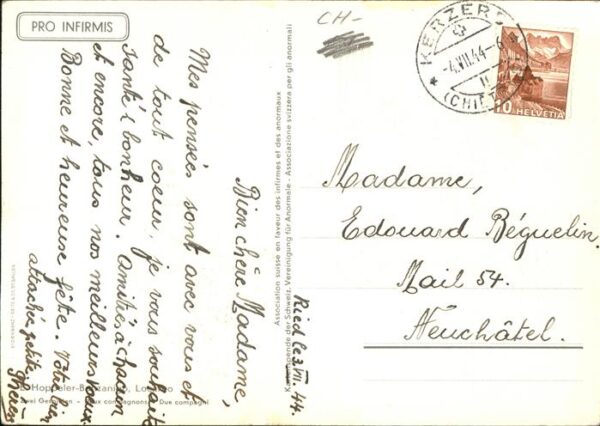 PRO INFIRMIS
CH-
KERZERS
-4.VII.44.-6
(CHIET
10 HELVETIA
Ried le 3 VII. 44.
Bien chère Madame,
Mes pensées sont avec vous et
de tout coeur, je vous souhaite
santé & bonheur. Amitiés à chacun
et encore, tous nos meilleurs vœux
Bonne et heureuse fête. Votre bien
attachée petite
Association suisse en faveur des infirmes et des anormaux
Kartenspende der Schweiz. Vereinigung für Anormale - Associazione svizzera per gli anormali
Madame,
Edouard Béguelin.
Mail 54.
Neuchâtel.
Hoppeler-B
Due compagni